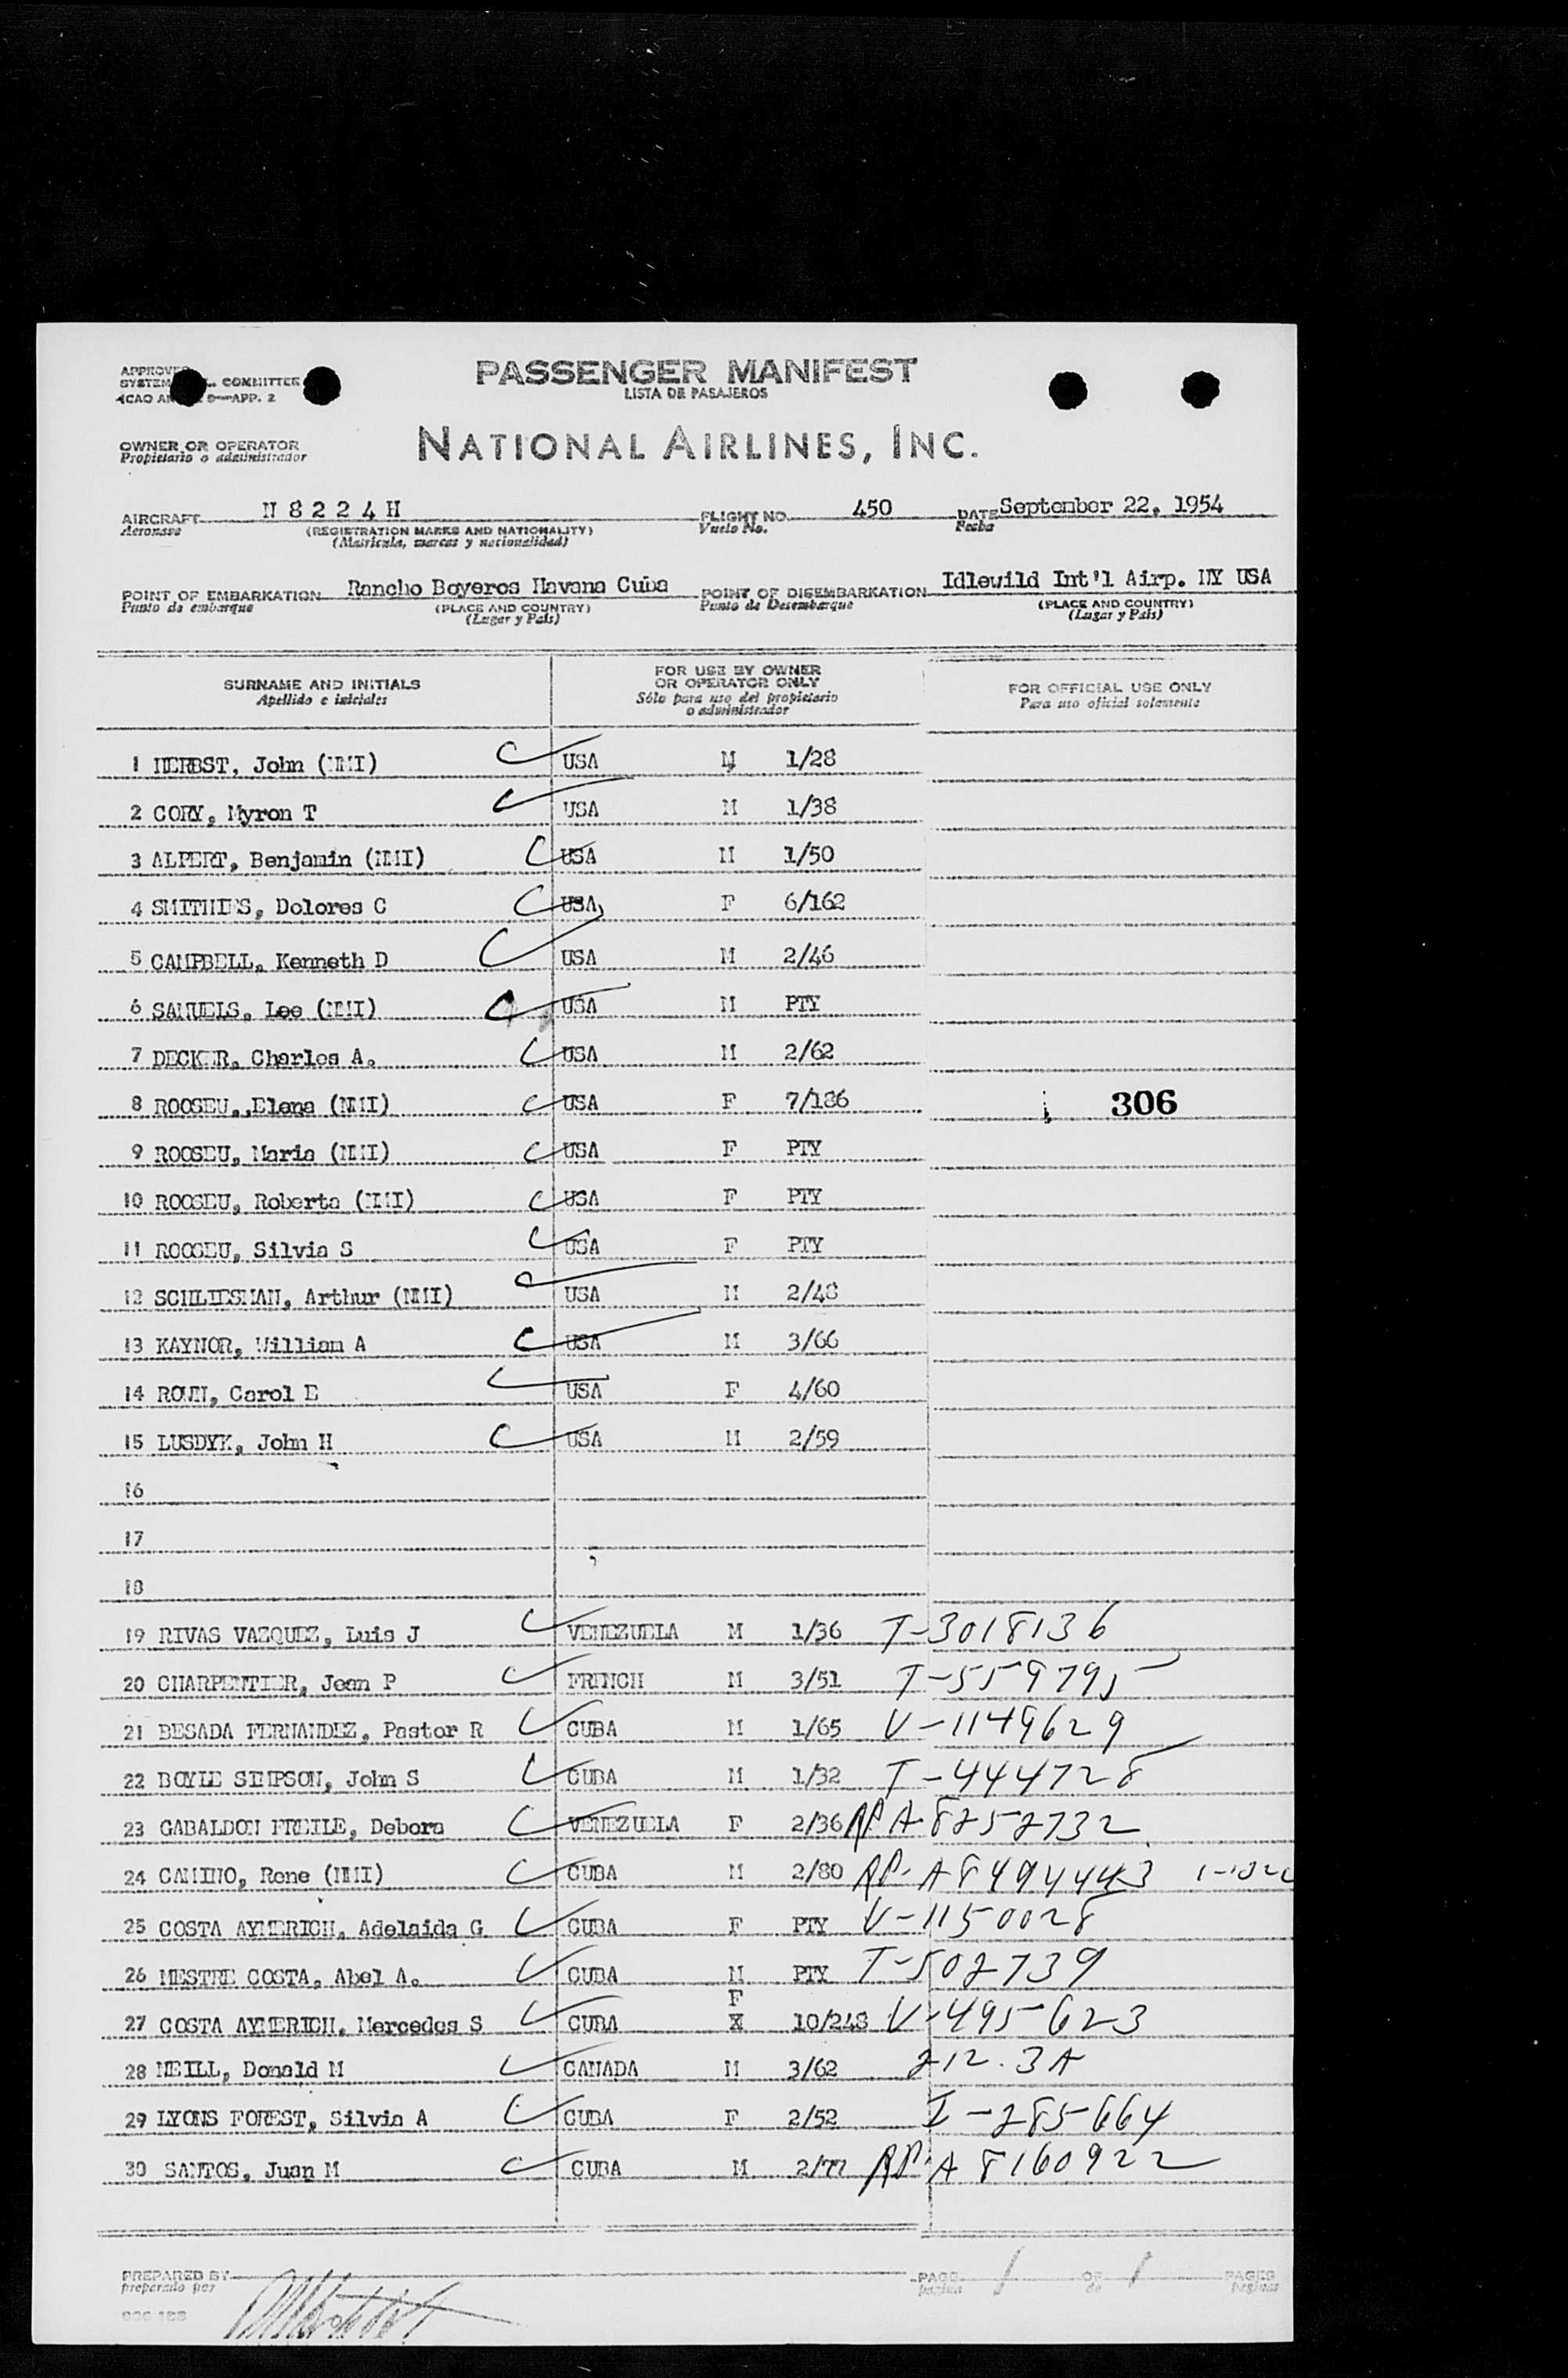 PASSENGER MANIFEST
LISTA DE PASAJEROS
COMMITTEE
APP. 2
OWNER OR OPERATOR
Propietario o administrador
NATIONAL AIRLINES, INC.
AIRCRAFT N 8 2 2 4 H FLIGHT NO. 450 DATE September 22, 1954
Aeronave (REGISTRATION MARKS AND NATIONALITY) Vuelo No. Fecha
(Matricula, marcas y nacionalidad)
POINT OF EMBARKATION Rancho Boyeros Havana Cuba POINT OF DISEMBARKATION Idlewild Int'l Airp. NY USA
Punto de embarque (PLACE AND COUNTRY) Punto de Desembarque (PLACE AND COUNTRY)
(Lugar y País) (Lugar y País)
SURNAME AND INITIALS
Apellido e iniciales
FOR USE BY OWNER
OR OPERATOR ONLY
Sólo para uso del propietario
o administrador
FOR OFFICIAL USE ONLY
Para uso oficial solamente
1 HERBST, John (NMI) USA M 1/28
2 CORY, Myron T USA M 1/38
3 ALPERT, Benjamin (NMI) USA M 1/50
4 SMITHIES, Dolores C USA F 6/162
5 CAMPBELL, Kenneth D USA M 2/46
6 SAMUELS, Lee (NMI) USA M PTY
7 DECKER, Charles A. USA M 2/62
8 ROOSEU, Elena (NMI) USA F 7/186 306
9 ROOSEU, Maria (NMI) USA F PTY
10 ROOSEU, Roberta (NMI) USA F PTY
11 ROOSEU, Silvia S USA F PTY
12 SCHLIESMAN, Arthur (NMI) USA M 2/48
13 KAYNOR, William A USA M 3/66
14 Carol E USA F 4/60
15 LUSDYK, John H USA M 2/59
16
17
18
19 RIVAS VAZQUEZ, Luis J VENEZUELA M 1/36 T-3018136
20 CHARPENTIER, Jean P FRENCH M 3/51 T-559795
21 BESADA FERNANDEZ, Pastor R CUBA M 1/65 V-1149629
22 BOYLE SIMPSON, John S CUBA M 1/32 T-444728
23 GABALDON FREILE, Debora VENEZUELA F 2/36 RP A-8252732
24 CAMINO, Rene (NMI) CUBA M 2/80 RP. A8494443
25 COSTA AYMERICH, Adelaida G CUBA F PTY V-1150028
26 MESTRE COSTA, Abel A. CUBA M PTY T-502739
F
27 COSTA AYMERICH, Mercedes S CUBA X 10/248 V-495623
28 NEILL, Donald M CANADA M 3/62 212.3A
29 LYONS FOREST, Silvia A CUBA F 2/52 I-285664
30 SANTOS, Juan M CUBA M 2/77 RP. A8160922
PREPARED BY PAGE 1 OF 1 PAGES
preparado por página de páginas